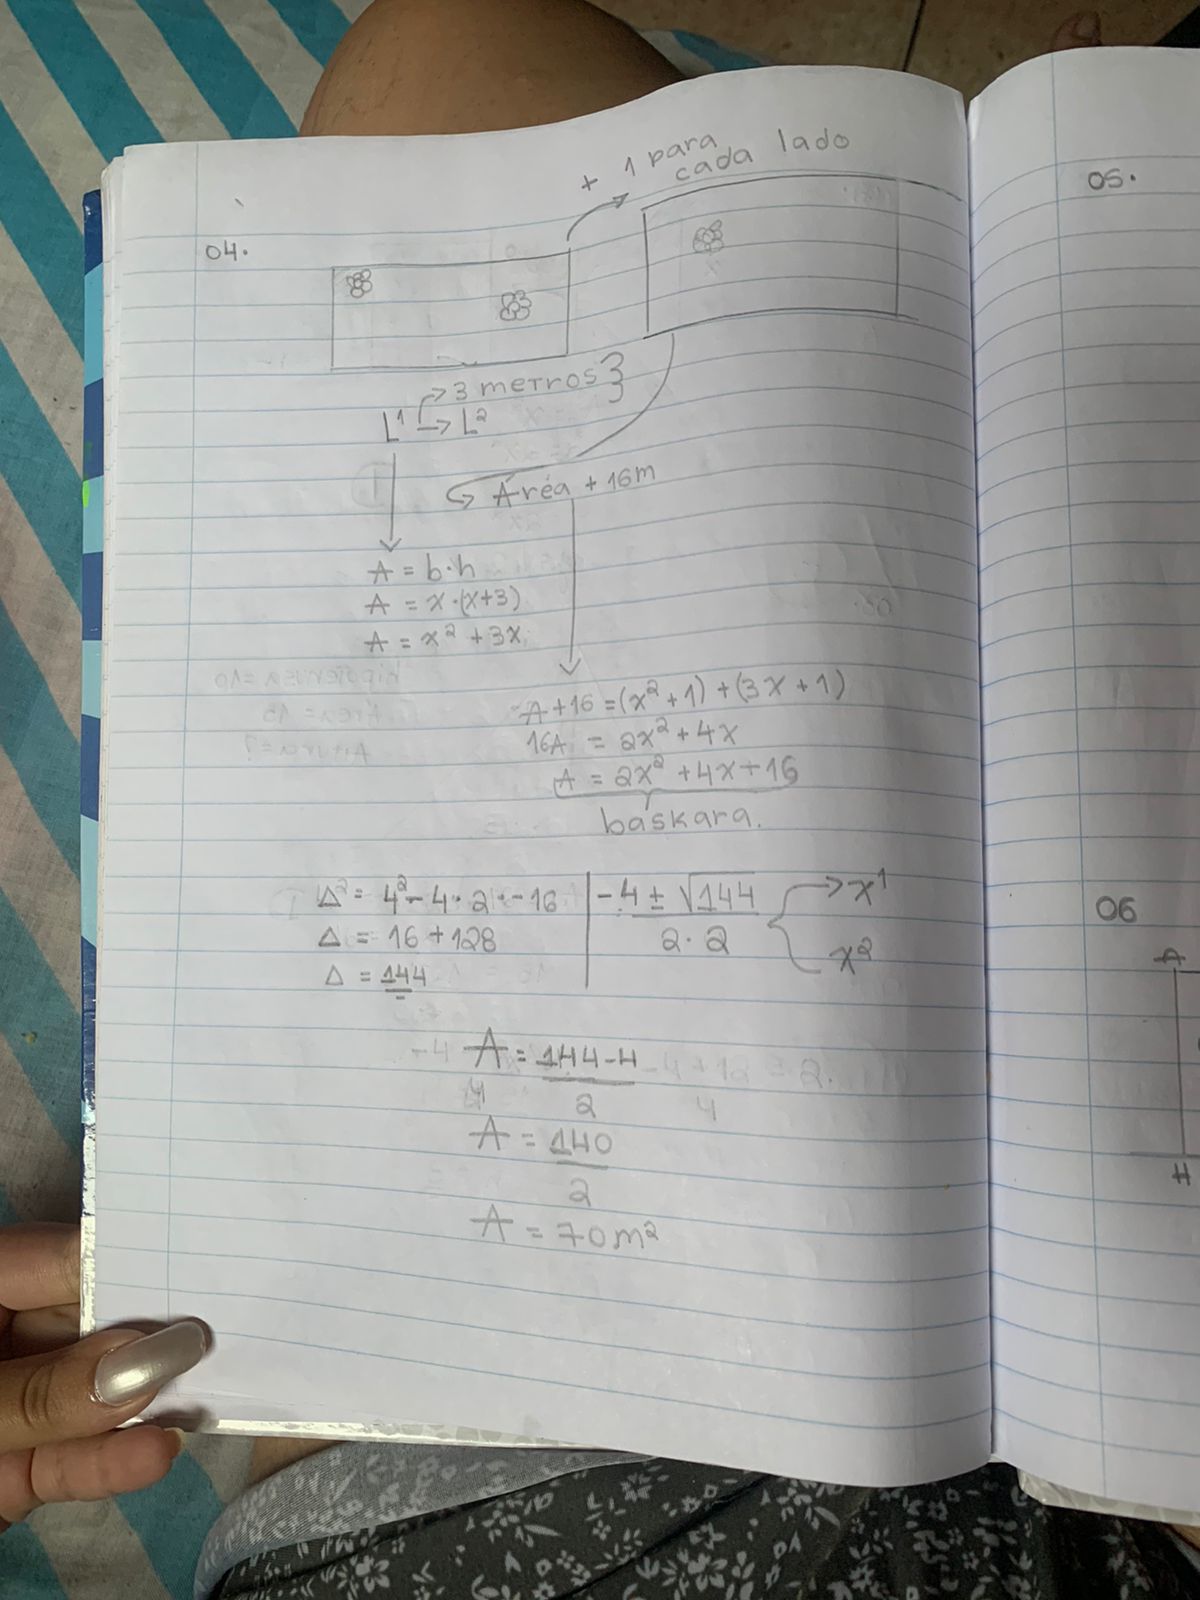 + 1 para
cada lado
04.
3 metros
L¹ → L²
Aréa + 16m
A = b·h
A = x·(x+3)
A = x² + 3x
A+16 = (x² + 1) + (3x + 1)
16A = 2x² + 4x
A = 2x² + 4x + 16
baskara.
Δ² = 4² - 4 · 2 · -16
Δ = 16 + 128
Δ = 144
-4 ± √144
2 · 2
x¹
x²
A = 144 - 4
2
-4 + 12 = 2.
4
A = 140
2
A = 70m²
05.
06
A
H